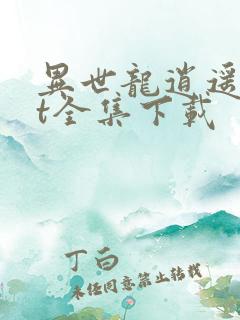 異世龍逍遥
t全集下載
丁白
未经同意禁止转载